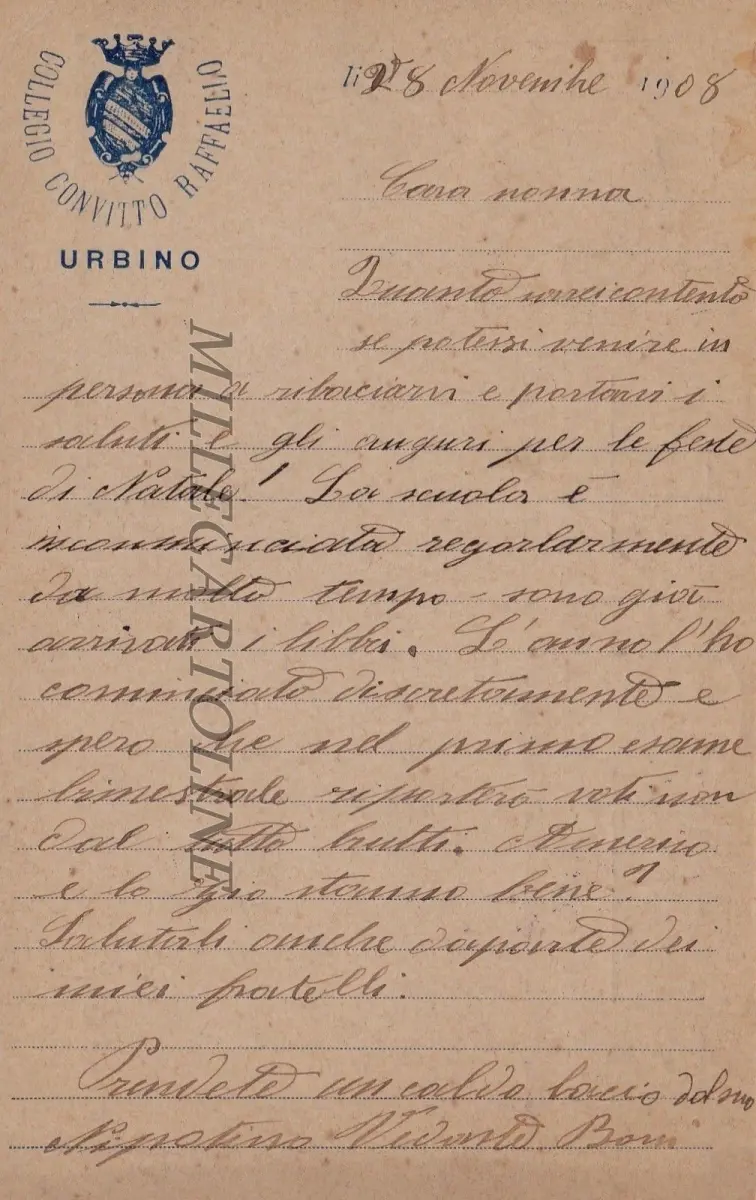 COLLEGIO CONVITTO RAFFAELLO
URBINO
lì 28 Novembre 1908
Cara nonna
Quanto sarei contento
se potessi venire in
persona a ribaciarvi e portarvi i
saluti e gli auguri per le feste
di Natale! La scuola è
incominciata regorlarmente
da molto tempo - sono già
arrivati i libbri. L'anno l'ho
cominciato discretamente e
spero che nel primo esame
bimestrale riporterò voti non
dal tutto brutti. Amerigo
e lo zio stanno bene?
Salutali anche daparte dei
miei fratelli.
Prendete un caldo bacio dal suo
Nipotino
MILLECARTOLINE